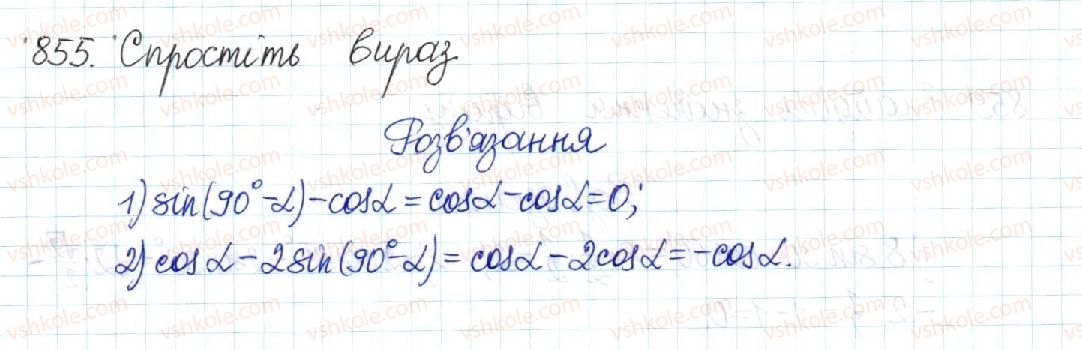 855. Спростіть вираз
Розв'язання
1) sin(90°-α)-cosα=cosα-cosα=0;
2) cosα-2sin(90°-α)=cosα-2cosα=-cosα.